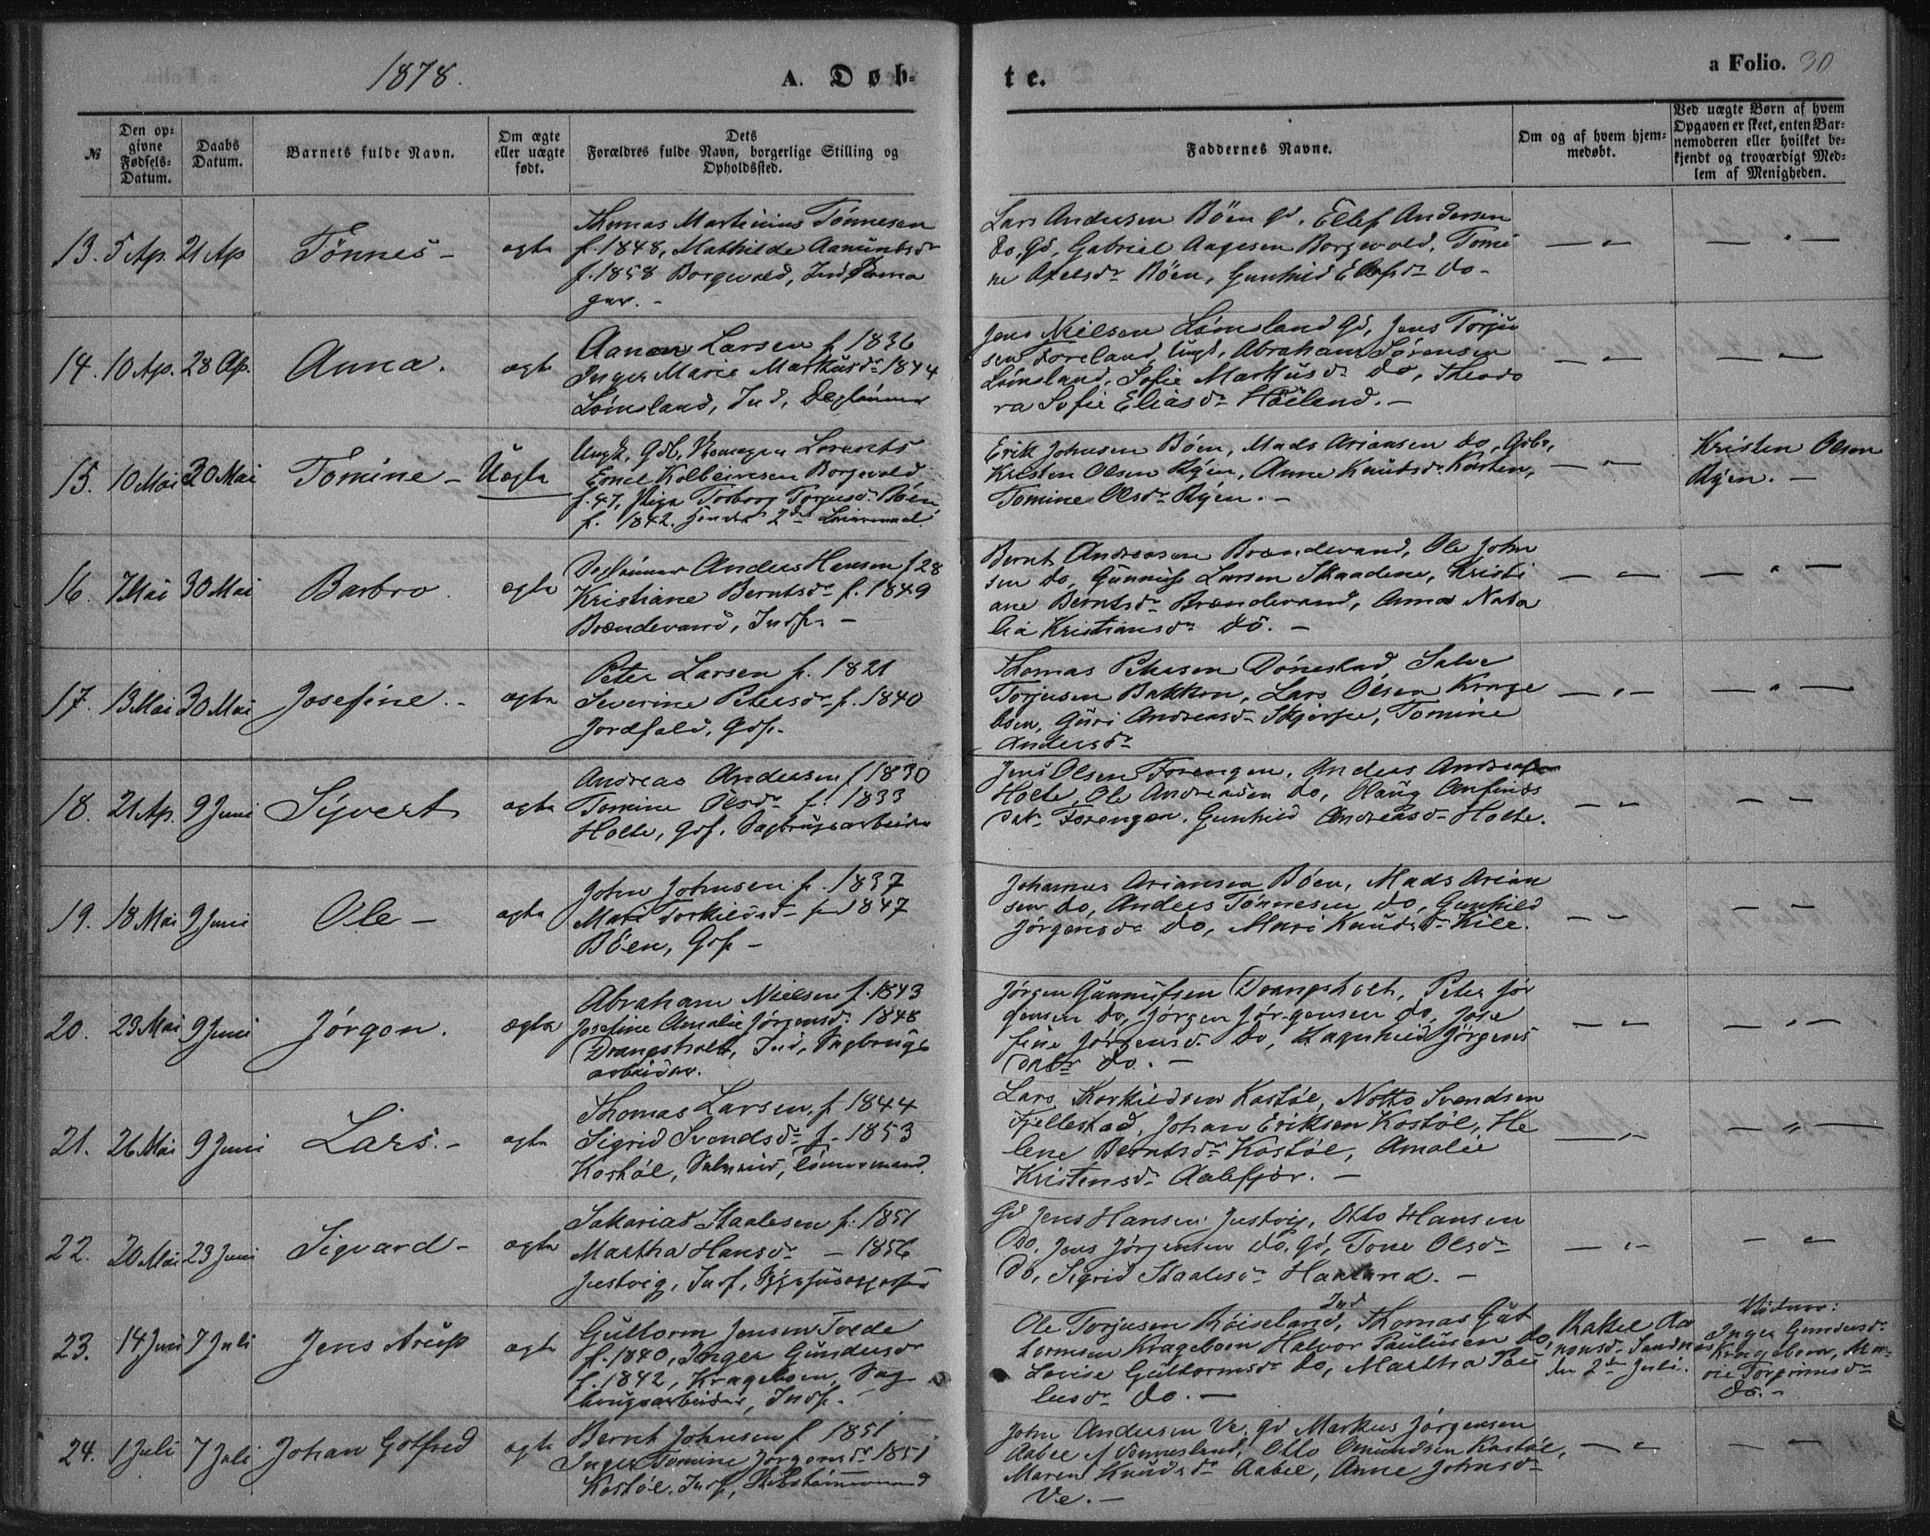 1878.
A. Døb-
te.
a Folio. 30
№
Den op-
givne
Fødsels-
Datum.
Daabs
Datum.
Barnets fulde Navn.
Om ægte
eller uægte
født.
Dets
Forældres fulde Navn, borgerlige Stilling og
Opholdssted.
Faddernes Navne.
Om og af hvem hjem-
medøbt.
Ved uægte Børn af hvem
Opgaven er skeet, enten Bar-
nemoderen eller hvilket be-
kjendt og troværdigt Med-
lem af Menigheden.
13. 5 Ap. 21 Ap Tønnes - ægte
Thomas Martinius Tønnesen
f. 1848, Mathilde Aamundsdr
f. 1858 Borgevold, Ind
Lars Andersen Bøen gd, Ellef Andersen
do, gd, Gabriel Aagesen Borgevold, Tomi
ne Axelsdr Bøen, Gunhild Ellefsdr do -
14. 10 Ap. 28 Ap. Anna. ægte
Aanen Larsen f 1836
Inger Marie Markusdr 1844
Lømsland, Ind,
Jens Nielsen Lømsland Gd, Jens Torju
sen Foreland, Ungk, Abraham Sørensen
Lømsland, Sofie Markusdr do, Theodo
ra Sofie Eliasdr Høiland. -
15. 10 Mai 30 Mai Tomine - Uægte
Emil Kolbeinsen Borgevold
f. 47, Pige Torborg Torjusdr Bøen
f. 1842. 2det Leiermaal
Erik Johnsen Bøen, Mads Ariansen do, Gdbr,
Kristen Olsen Ryen, Anne Knudsdr Kosten,
Tomine Olsdr Ryen. -
Kristen Olsen
Ryen. -
16. 7 Mai 30 Mai Barbro. ægte
Anders Hansen f 28
Kristiane Berntsdr f. 1849
Brændevand, Indf. -
Bernt Andreasen Brændevand, Ole John
sen do, Gunnuf Larsen Skaadene, Kristi
ane Berntsdr Brændevand, Anna Nata
lia Kristiansdr do. -
17. 13 Mai 30 Mai Josefine. - ægte
Peter Larsen f. 1821
Severine Petersdr f. 1840
Jordfald, Gdf.
Thomas Petersen Dønestad, Salve
Torjusen Bakken, Lars Olsen Krage
boen, Guri Andreasdr, Tomine
Andersdr
18. 21 Ap. 9 Juni Syvert ægte
Andreas Andersen f 1830
Tomine Olsdr f. 1833
Holte, Gdf. Sagbrugsarbeider
Jens Olsen Forengen, Anders Andreasen
Holte, Ole Andreasen do, Olaug Anfinds
datr Forengen, Gunhild Andreasdr Holte.
19. 18 Mai 9 Juni Ole - ægte
John Johnsen f. 1837
Mari Torkildsdr f 1847
Bøen, Gdf -
Johannes Ariansen Bøen, Mads Arian
sen do, Anders Tønnesen do, Gunhild
Jørgensdr do, Mari Knudsdr Kile.
20. 29 Mai 9 Juni Jørgen. ægte
Abraham Nielsen f. 1843
Josefine Amalie Jørgensdr 1848
Drangsholt, Ind, Sagbrugs
arbeider.
Jørgen Gunnufsen Drangsholt, Peter Jør
gensen do, Jørgen Jørgensen do, Jose
fine Jørgensdr do, Ragnhild Jørgens
datr do. -
21. 26 Mai 9 Juni Lars. - ægte
Thomas Larsen f 1844
Sigrid Svendsdr f. 1853
Kostøl,
Lars Torkildsen Kostøl, Notto Svendsen
Fjellestad, Johan Eriksen Kostøl, He
lene Berntsdr Kostøl, Amalie
Kristensdr Aalefjær. -
22. 20 Mai 23 Juni Sigvard - ægte
Sakarias Staalesen f. 1851
Martha Hansdr - 1856
Justvig, Indf,
Gd Jens Hansen Justvig, Otto Hansen
do, Jens Jørgensen do, Gd, Tone Olsdr
do, Sigrid Staalesdr Haaland. -
23. 14 Juni 7 Juli Jens Arup ægte
Guttorm Jensen Tvede
f. 1840, Inger Gundersdr
f. 1842, Krageboen, Sag
brugsarbeider, Indf.
Ole Torjusen Røiseland, Ind Thomas Gut
tormsen Krageboen Halvor Paulusen do,
Lovise Guttormsdr do, Martha Pau
lusdr do. -
Rakel Aa
nonsdr Sandnes
den 2den Juli.
Vidner:
Inger Gundersdr
Krageboen, Ma-
do. -
24. 1 Juli 7 Juli Johan Gotfred ægte
Bernt Johnsen f 1851
Inger Tomine Jørgensdr 1851
Kostøl, Indf,
John Andersen Ve, gd Markus Jørgensen
Aabel af Vennesland, Otto Omundsen Kostøl,
Maren Knudsdr Aabel, Anne Johnsdr
Ve. -